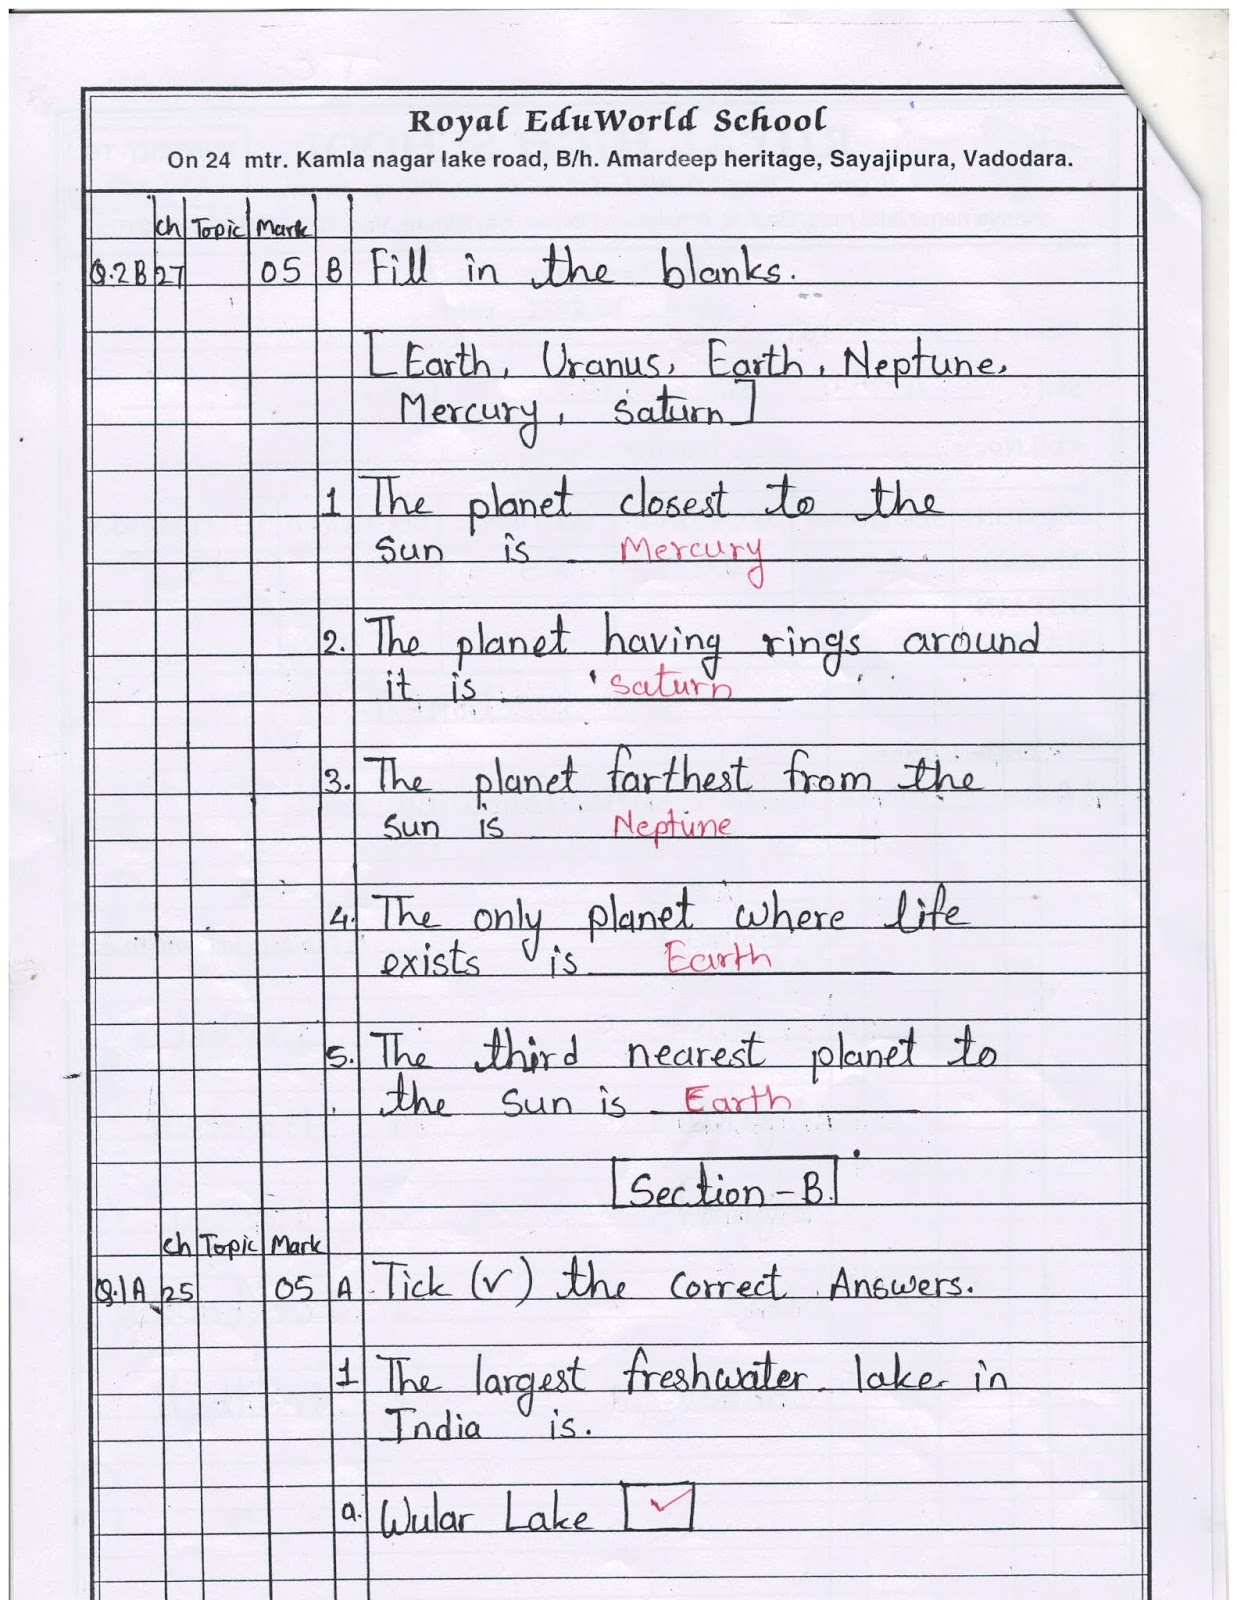 Royal EduWorld School
On 24 mtr. Kamla nagar lake road, B/h. Amardeep heritage, Sayajipura, Vadodara.
ch Topic Mark
Q.2B 27 05 B Fill in the blanks.
[Earth, Uranus, Earth, Neptune,
Mercury, Saturn]
1 The planet closest to the
Sun is Mercury
2. The planet having rings around
it is Saturn
3. The planet farthest from the
Sun is Neptune
4. The only planet where life
exists is Earth
5. The third nearest planet to
the Sun is Earth
Section-B.
ch Topic Mark
Q.1A 25 05 A Tick (✓) the correct Answers.
1 The largest freshwater lake in
India is.
a. Wular Lake ✓